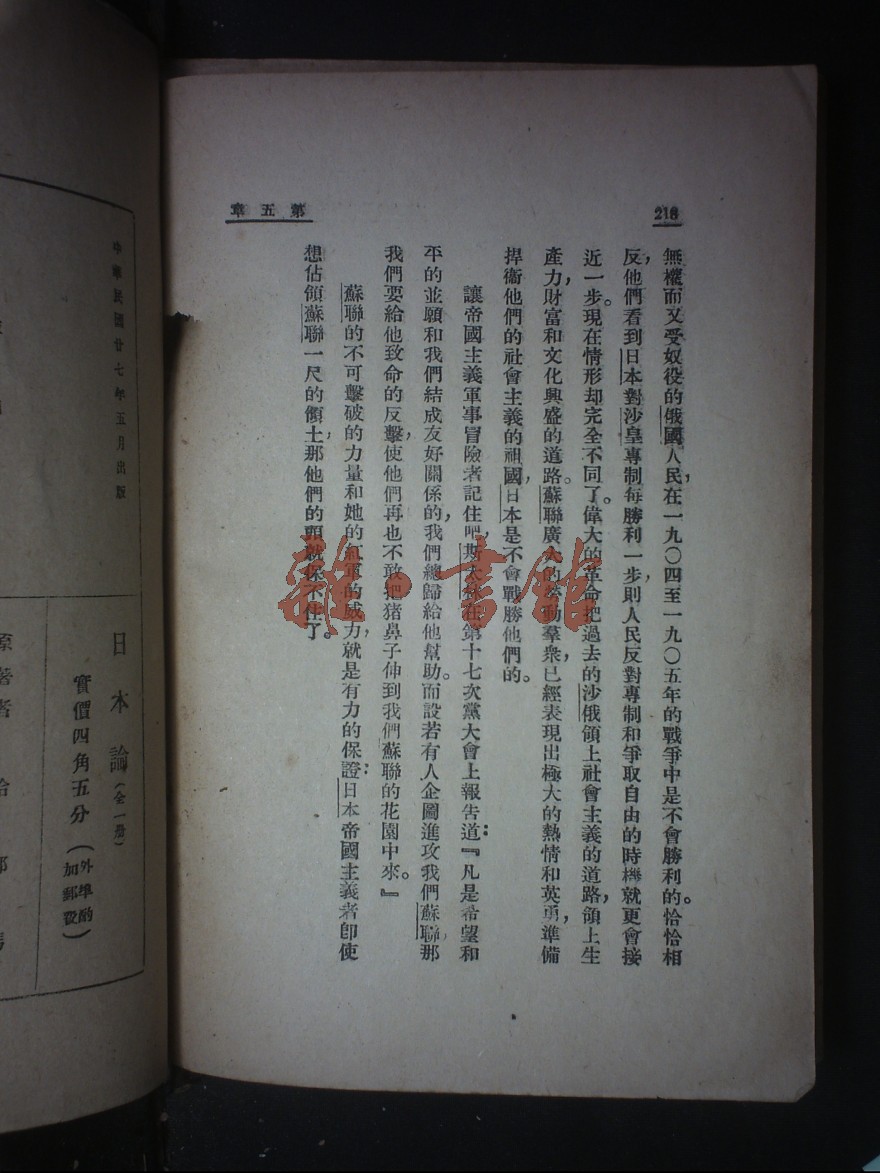 218
第五章
無權而又受奴役的俄國人民,在一九〇四至一九〇五年的戰爭中是不會勝利的。恰恰相
反,他們看到日本對沙皇專制每勝利一步,則人民反對專制和爭取自由的時機就更會接
近一步。現在情形却完全不同了。偉大的革命把過去的沙俄領上社會主義的道路,領上生
產力,財富和文化興盛的道路。蘇聯廣大的勞動羣衆,已經表現出極大的熱情和英勇,準備
捍衞他們的社會主義的祖國,日本是不會戰勝他們的。
讓帝國主義軍事冒險者記住吧,斯太林在第十七次黨大會上報告道:『凡是希望和
平的並願和我們結成友好關係的,我們總歸給他幫助。而設若有人企圖進攻我們蘇聯,那
我們要給他致命的反擊,使他們再也不敢把猪鼻子伸到我們蘇聯的花園中來。』
蘇聯的不可擊破的力量和她的紅軍的威力,就是有力的保證:日本帝國主義者卽使
想佔領蘇聯一尺的領土,那他們的頭就保不住了。
雜·書館
中華民國廿七年五月出版
日本論(全一册)
實價四角五分(外埠酌加郵費)
原著者